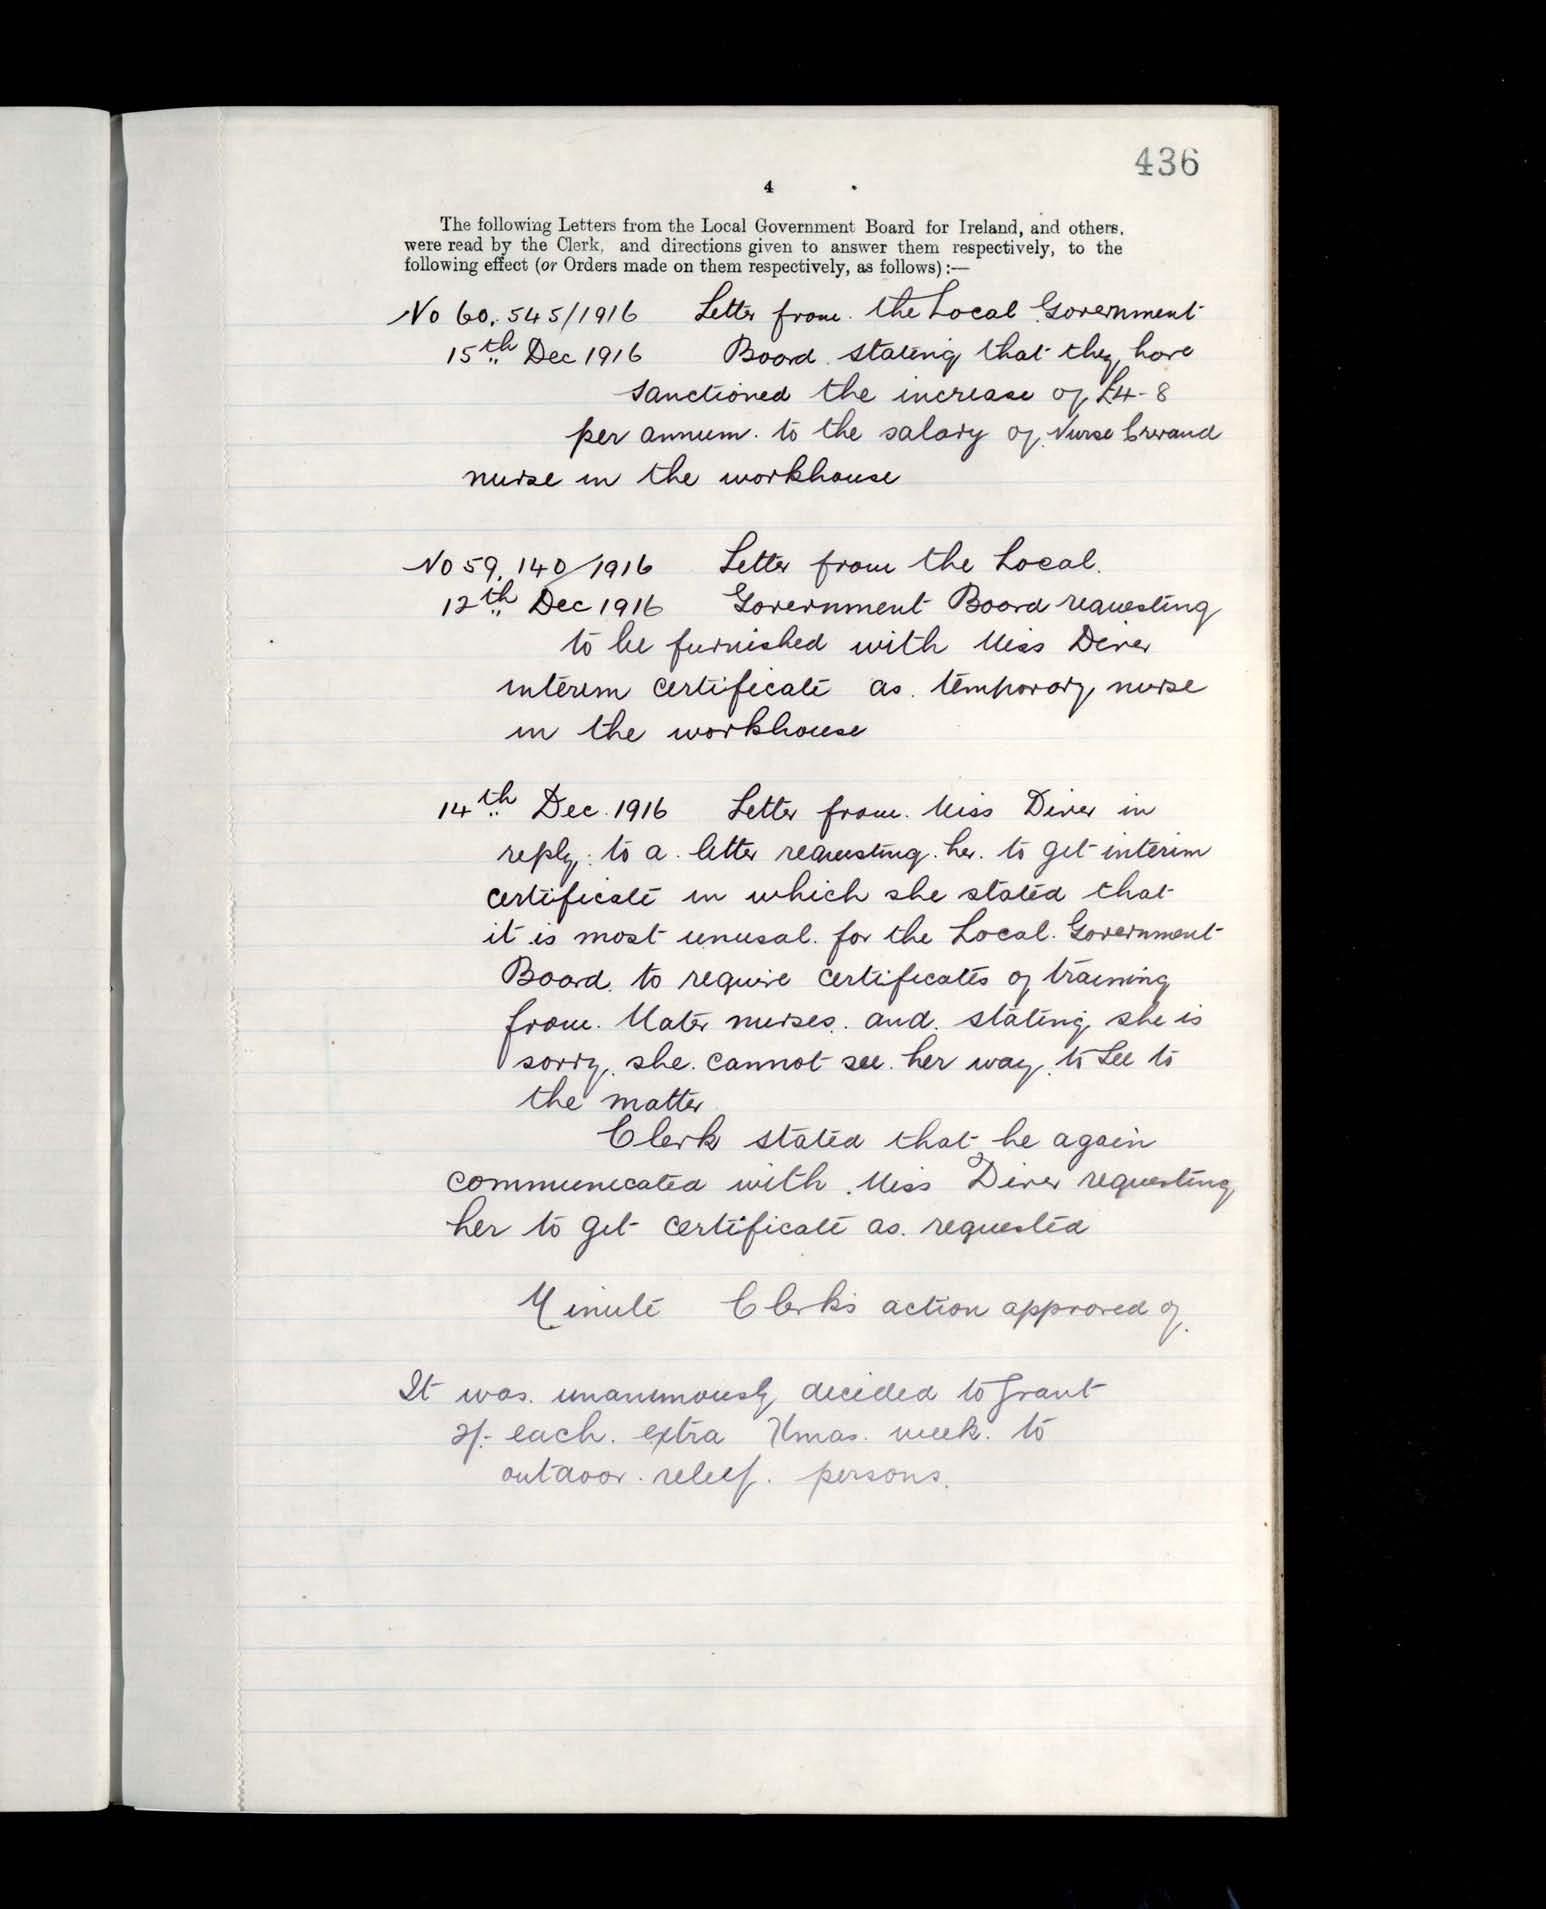 436
4
The following Letters from the Local Government Board for Ireland, and others,
were read by the Clerk, and directions given to answer them respectively, to the
following effect (or Orders made on them respectively, as follows) :—
No 60,545/1916 Letter from the Local Government
15th Dec 1916 Board stating that they have
sanctioned the increase of £4-8
per annum to the salary of Nurse
nurse in the workhouse
No 59,140/1916 Letter from the Local
12th Dec 1916 Government Board requesting
to be furnished with Miss Diver
interim certificate as temporary nurse
in the workhouse
14th Dec 1916 Letter from Miss Diver in
reply to a letter requesting her to get interim
certificate in which she stated that
it is most unusal for the Local Government
Board to require certificates of training
from Mater nurses and stating she is
sorry she cannot see her way to see to
the matter
Clerk stated that he again
communicated with Miss Diver requesting
her to get certificate as requested
Minute Clerk's action approved of
It was unanimously decided to grant
2/- each extra Xmas week to
outdoor relief persons.